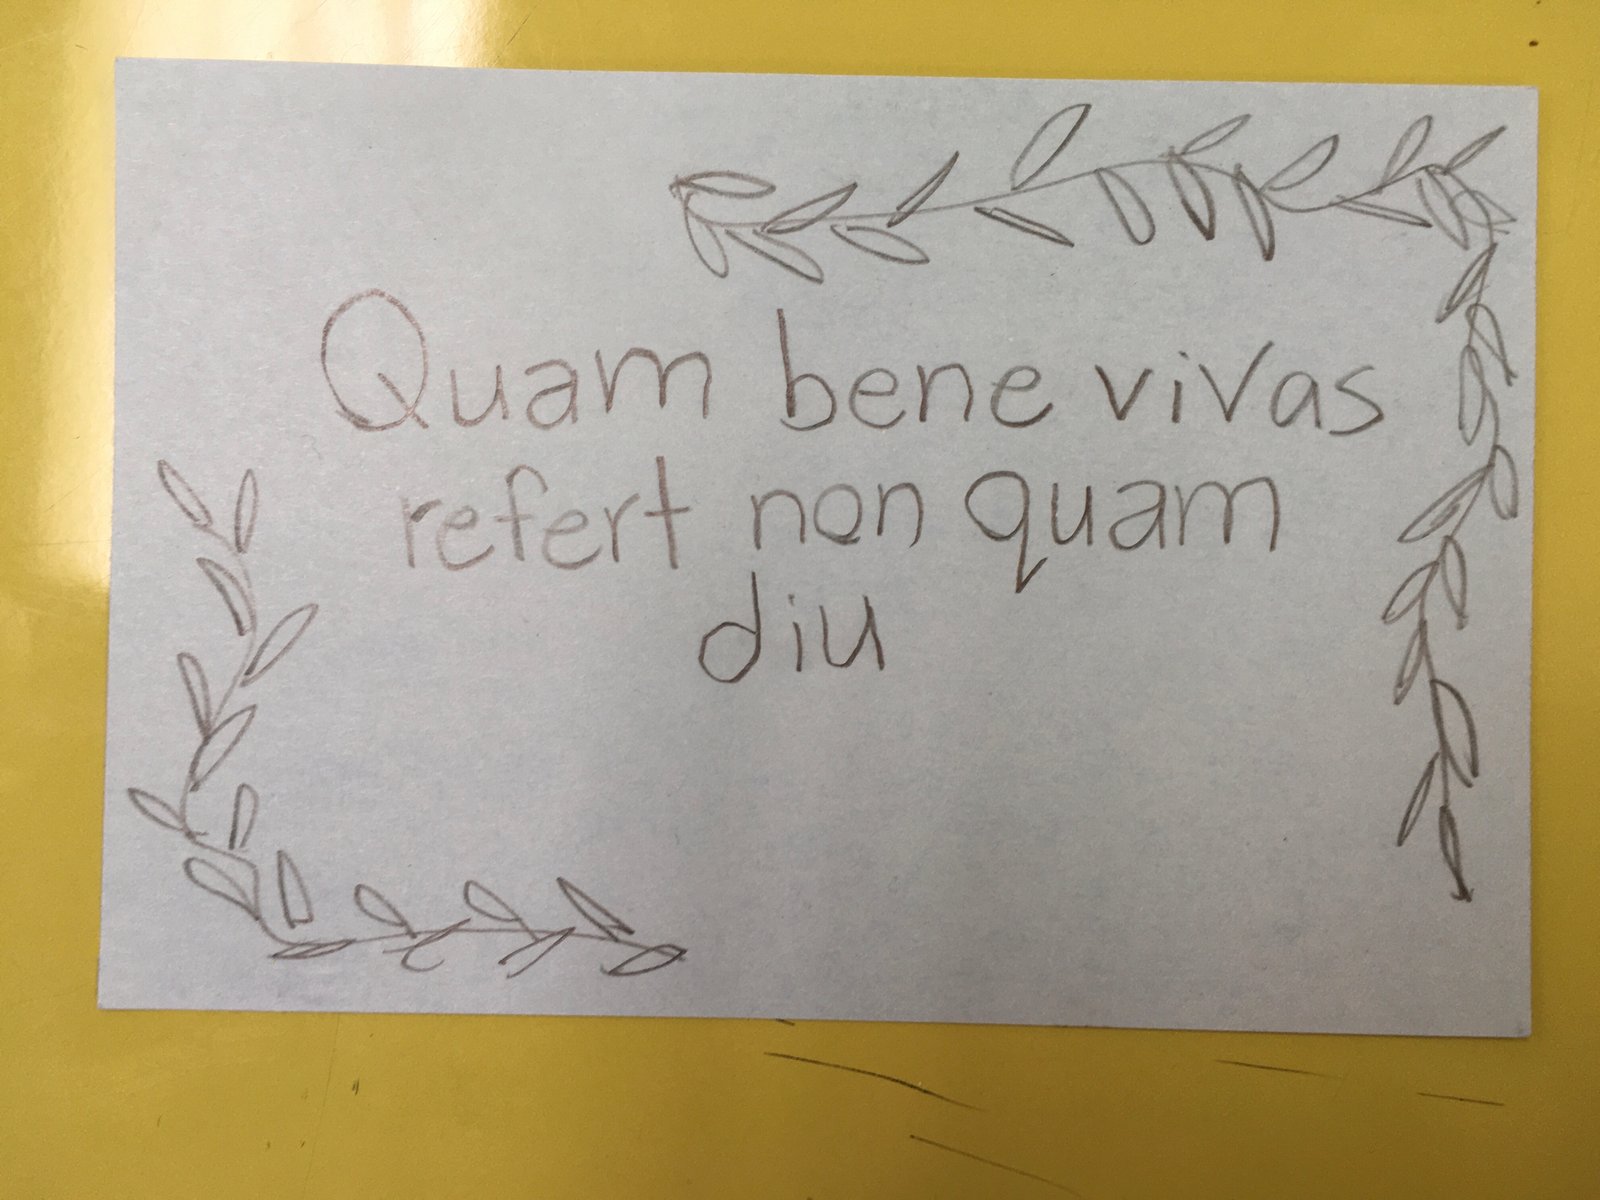 Quam bene vivas
refert non quam
diu